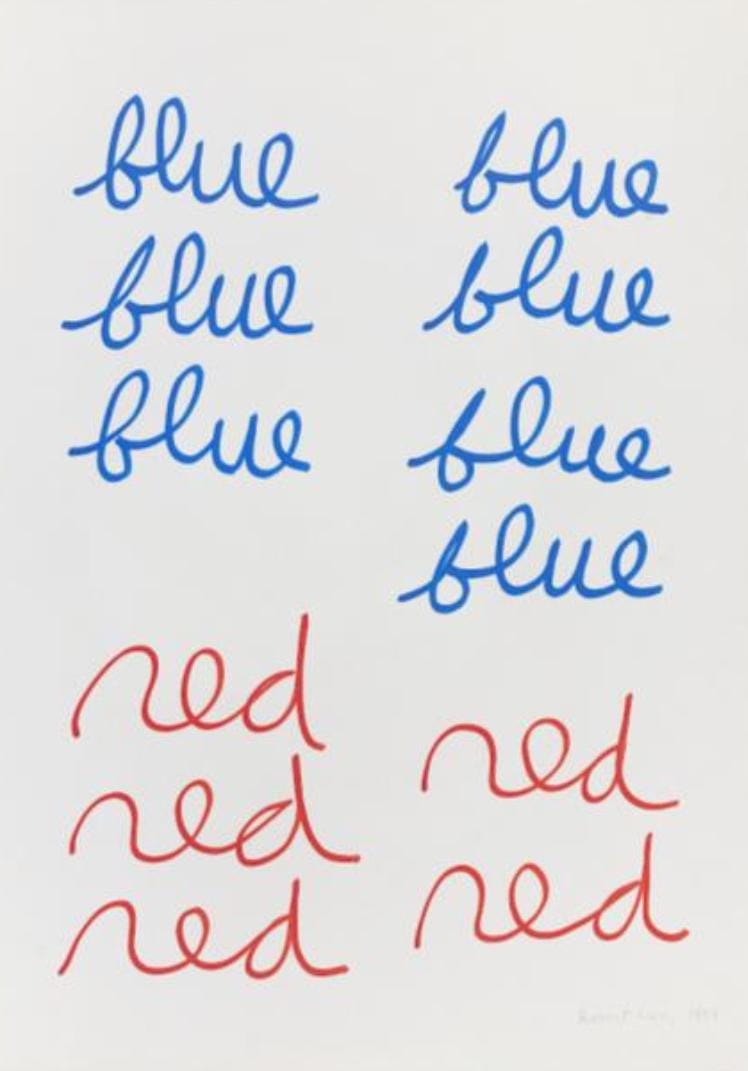 blue blue
blue blue
blue blue
blue
red
red
red
red
red